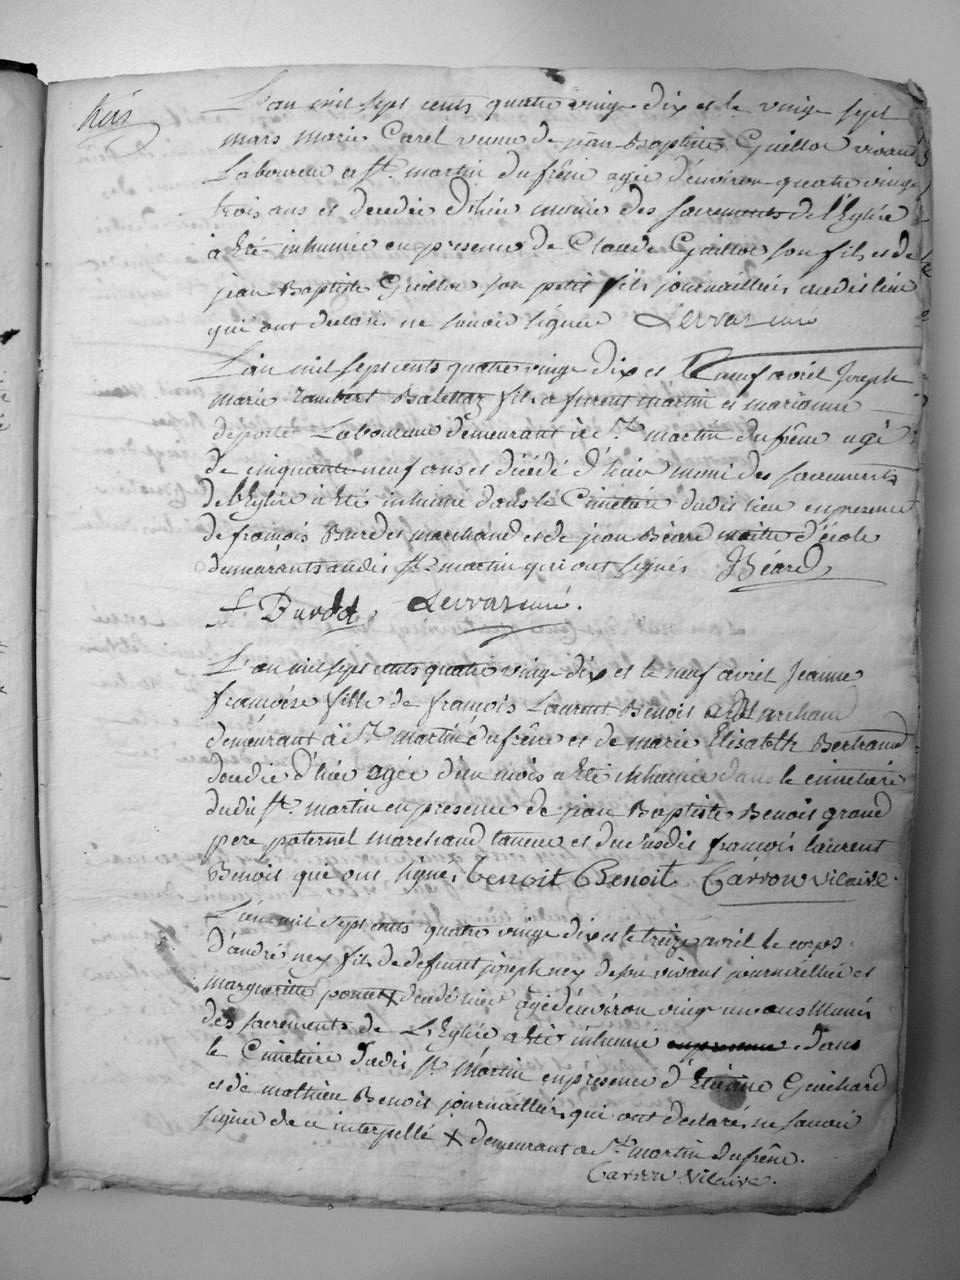 L'an mil sept cents quatre vingt dix et le vingt sept
mars marie Carel veuve de jean Baptiste Guillot vivant
Laboureur a St. martin du frêne agée d'environ quatre vingt
trois ans et decedée d'hier munie des sacrements de l'Eglise
à Eté inhumée en presence de Claude Guillot son fils et de
jean Baptiste Guillot son petit fils journailliers audit lieu
qui ont declaré ne savoir signer Levrat curé
L'an mil sept cents quatre vingt dix et le neuf avril Joseph
marie Lambert Balettaz fils a furent martin et marianne
deporte Laboureur demeurant à St. martin du frêne agé
de cinquante neuf ans et décédé d'hier muni des sacrements
de l'Eglise à Eté inhumé dans le Cimetiére dudit lieu en presence
de françois Burdet marchand et de jean Béard maitre d'école
demeurants audit St. martin qui ont signés JBéard
f Burdet Levrat curé.
L'an mil sept cents quatre vingt dix et le neuf avril Jeanne
françoise fille de françois Laurent Benoit Marchand
demeurant à St. martin du frêne et de marie Elisabeth Bertrand
decedée d'hier agée d'un mois a Eté inhumée dans le cimetiére
dudit St. martin en presence de jean Baptiste Benoit grand
pere paternel marchand taneur et du susdit françois laurent
Benoit qui ont signés benoit Benoit Carron vicaire.
L'an mil sept cents quatre vingt dix et le treize avril le corps
D'andré ney fils de defunt joseph ney de son vivant journaillier et
marguerite ponet x decedé hier agé d'environ vingt un ans Muni
des sacrements de L'Eglise a Eté inhumé dans
le Cimetiere dudit St. Martin en presence d'Etienne Guichard
et de mathieu Benoit journailliers qui ont declarés ne savoir
signer de ce interpellé x demeurant a St. martin du frêne.
Carron Vicaire.